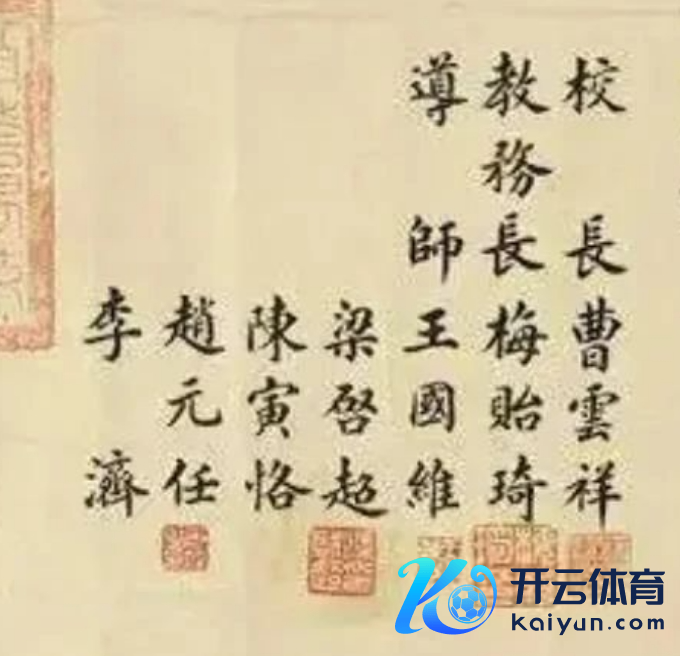 校長曹雲祥
教務長梅貽琦
導師王國維
梁啓超
陳寅恪
趙元任
李濟
开云体育
kaiyun.com